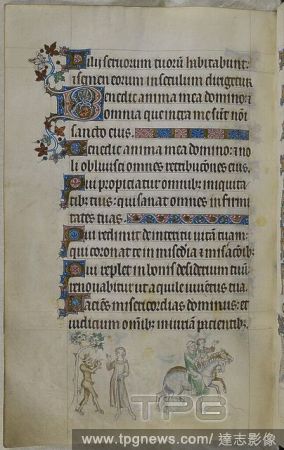 Filii seruorum tuorū habitabunt:
et semen eorum in seculum dirigetur
Benedic anima mea domino: et
omnia que intra me sūt noī
sancto eius.
Benedic anima mea domino: et no
li obliuisci omnes retribucōnes eius.
Qui propiciatur omnibȝ iniquita
tibȝ tuis: qui sanat omnes infirmi
tates tuas.
Qui redimit de interitu uitā tuam:
qui coronat te in misc̄dia et misac̄oībȝ
Qui replet in bonis desiderium tuū:
renouabitur ut aquile iuuentus tua
faciēs misericordias dominus: et
iudicium om̄ibȝ iniuriā pacientibȝ.
TPG
www.tpgnews.com/ 達志影像